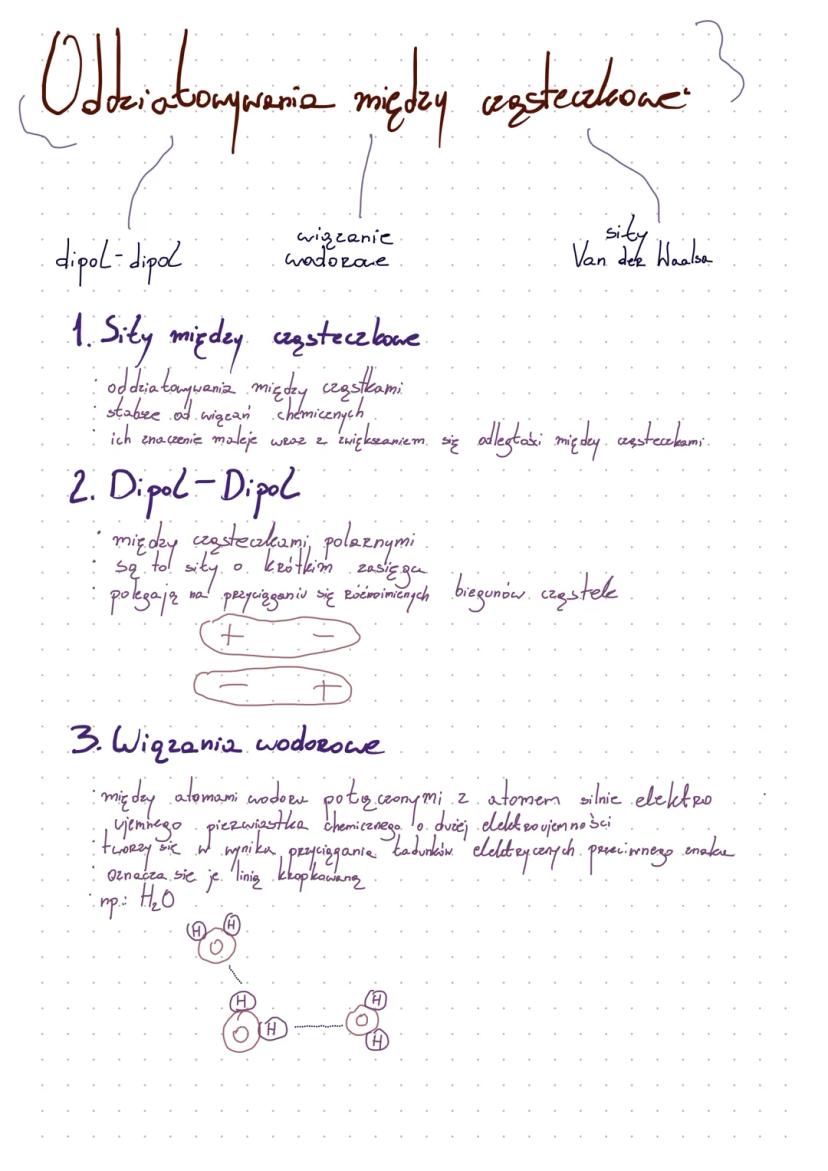 Oddziałowywania między cząsteczkowe
dipol-dipol
wiązanie
wodorowe
siły
Van der Waalsa
1. Siły między cząsteczkowe
oddziałowywania między cząstkami
słabsze od wiązań chemicznych
ich znaczenie maleje wraz z zwiększaniem się odległości między cząsteczkami
2. Dipol-Dipol
między cząsteczkami polarnymi
są to siły o krótkim zasięgu
polegają na przyciąganiu się różnoimiennych biegunów cząstek
+ -
- +
3. Wiązania wodorowe
między atomami wodoru połączonymi z atomem silnie elektro
ujemnego pierwiastka chemicznego o dużej elektroujemności
tworzy się w wyniku przyciągania ładunków elektrycznych przeciwnego znaku
oznacza się je linią kropkowaną
np.: H₂O
H H
O
H H
O H O
H